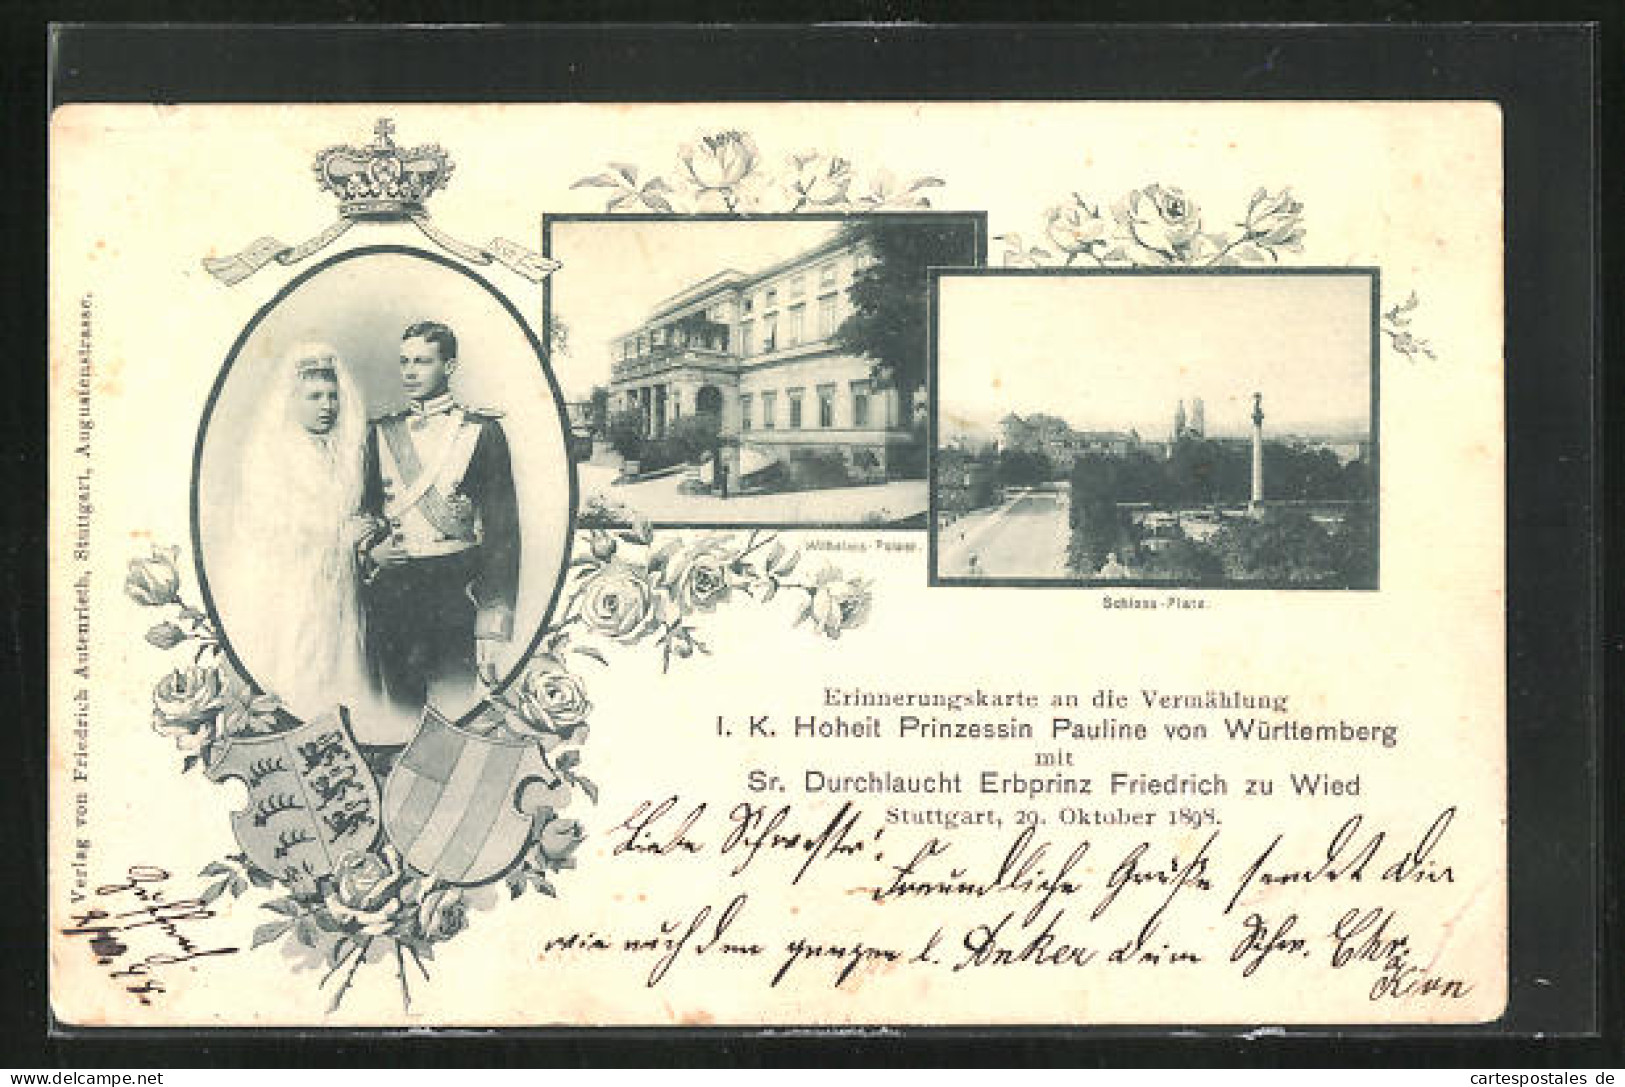 Verlag von Friedrich Autenrieth, Stuttgart, Augustenstrasse.
Wilhelms-Palast.
Schloss-Platz.
Erinnerungskarte an die Vermählung
I. K. Hoheit Prinzessin Pauline von Württemberg
mit
Sr. Durchlaucht Erbprinz Friedrich zu Wied
Stuttgart, 29. Oktober 1898.
Liebe Schwester!
Freundliche Grüße sendet Dir
wie auch dem ganzen l. Anker Dein Schw. Chr.
cartespostales de